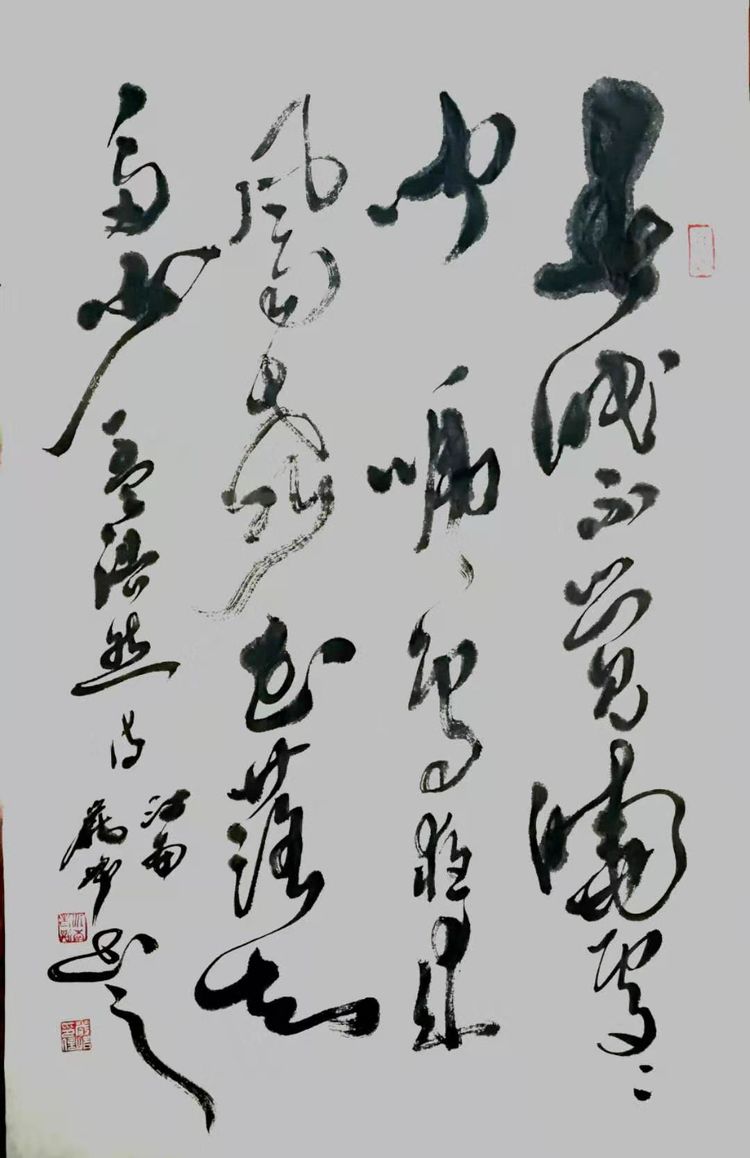 春眠不覺曉處々
聞啼鳥夜来
風雨聲花落知
多少孟浩然詩
江南
書之